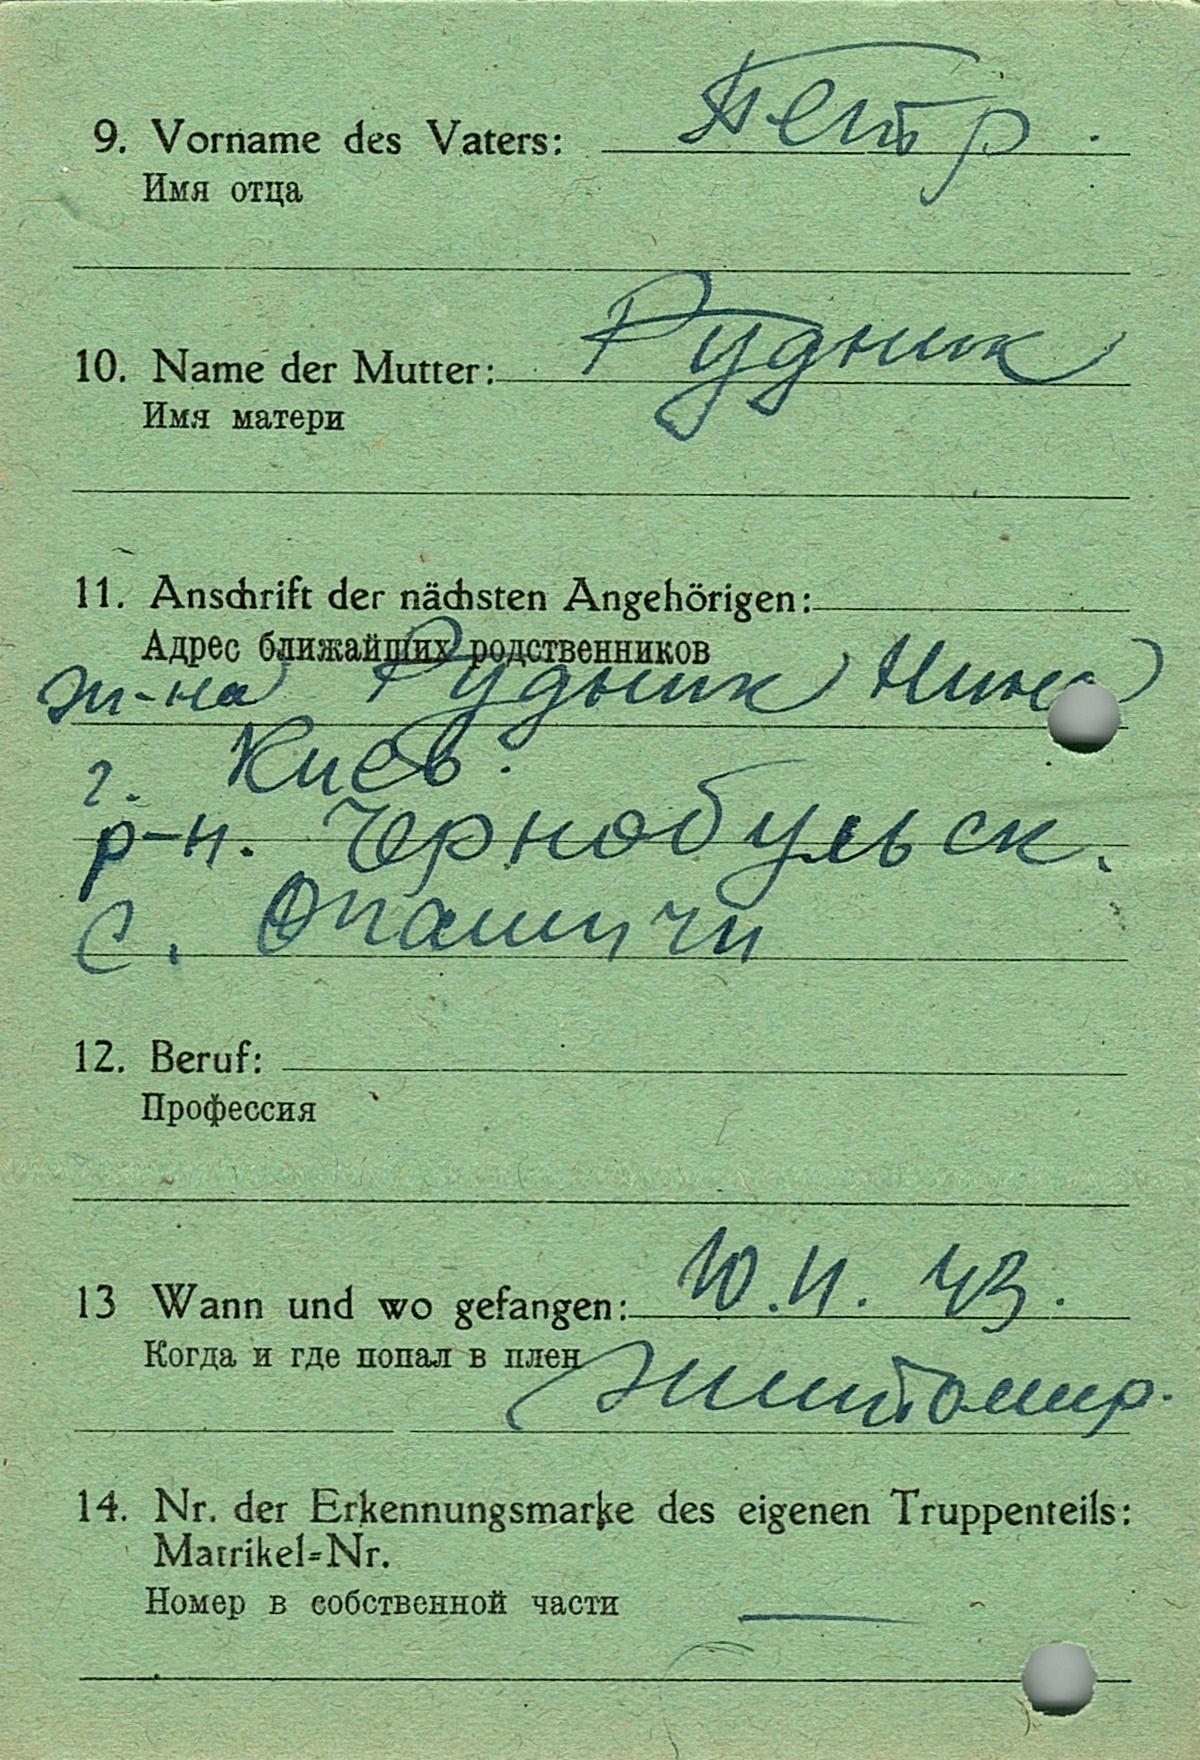 9. Vorname des Vaters: Петр.
Имя отца
10. Name der Mutter: Рудник
Имя матери
11. Anschrift der nächsten Angehörigen:
Адрес ближайших родственников
ж-на Рудник Нина
г. Киев.
р-н. Чернобульск.
с. Опачичи
12. Beruf:
Профессия
13 Wann und wo gefangen: 10.11.43.
Когда и где попал в плен Житомир.
14. Nr. der Erkennungsmarke des eigenen Truppenteils:
Matrikel=Nr.
Номер в собственной части —